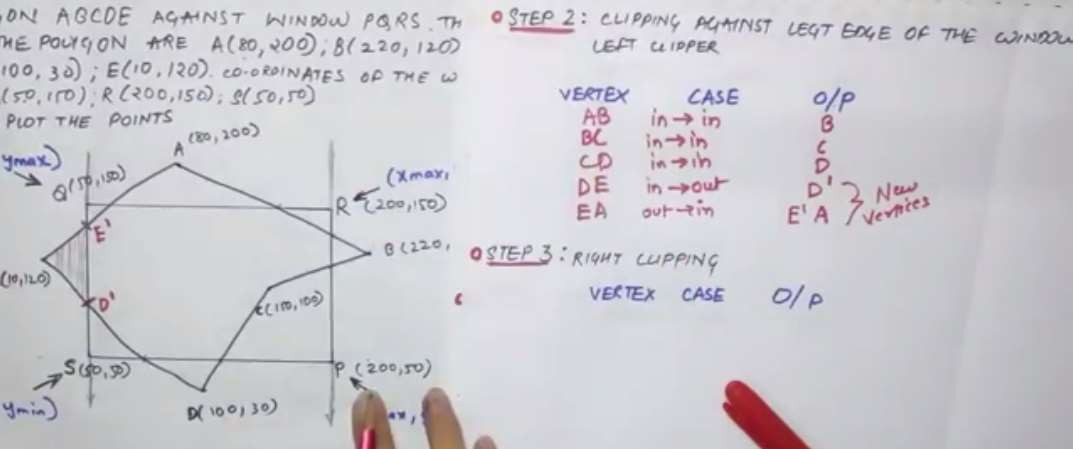 ON ABCDE AGAINST WINDOW PQRS. TH
HE POLYGON ARE A(80,200); B(220,120)
100,30); E(10,120). CO-ORDINATES OF THE W
(50,150); R(200,150); S(50,50)
PLOT THE POINTS
ymax)
Q(50,150)
A (80,200)
(xmax,
R (200,150)
E'
B(220,
(10,120)
D'
C(150,100)
S(50,50)
P (200,50)
ymin)
D(100,30)
ax,
STEP 2: CLIPPING AGAINST LEGT EDGE OF THE WINDOW
LEFT CLIPPER
VERTEX CASE O/P
AB in → in B
BC in → in C
CD in → in D
DE in → out D'
EA out → in E' A
New
vertices
STEP 3: RIGHT CLIPPING
VERTEX CASE O/P